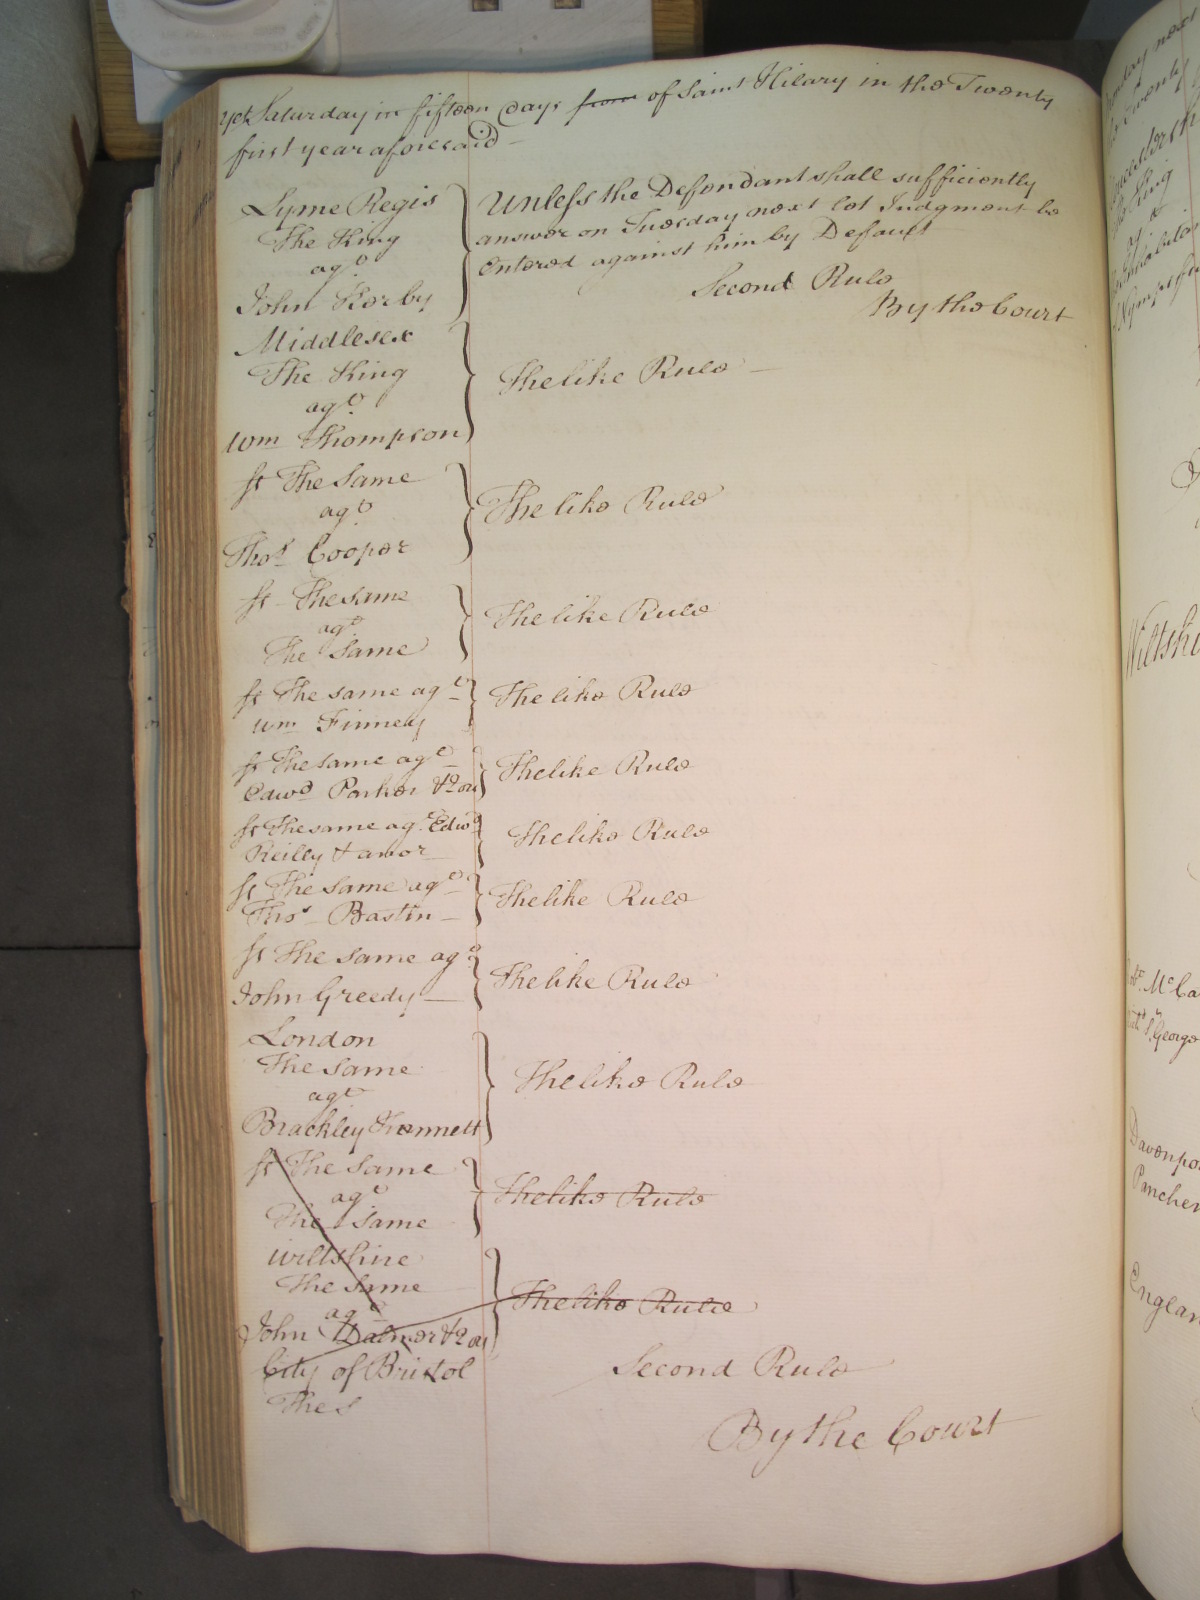 yet Saturday in fifteen days from of Saint Hilary in the Twenty
first year aforesaid
Lyme Regis
The King
agt
John Korby
Unless the Defendant shall sufficiently
answer on Tuesday next let Judgment be
Entered against him by Default
Second Rule
By the Court
Middlesex
The King
agt
Wm Thompson
The like Rule
st The Same
agt
Thos Cooper
The like Rule
st The same
agt
The Same
The like Rule
st The same agt
Wm Finney
The like Rule
st The same agt
Edwd Parker & an
The like Rule
st The same agt Edwd
Reilly & anor
The like Rule
st The Same agt
Thos Bastin
The like Rule
st The Same agt
John Greedy
The like Rule
London
The Same
agt
Brackley Kennett
The like Rule
st The Same
agt
The Same
The like Rule
Wiltshire
The Same
agt
John
The like Rule
City of Bristol
The S
Second Rule
By the Court
Wiltshi
McCa
George
Davenpo
Panchen
Englan